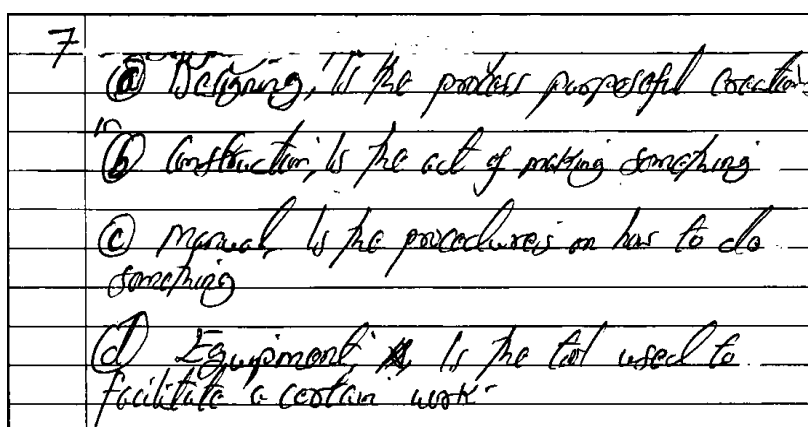 7
(a) Designing, Is the process purposeful creation
(b) Construction, Is the act of making something
(c) Manual, Is the procedures on how to do
something
(d) Equipment, Is the tool used to
facilitate a certain work.